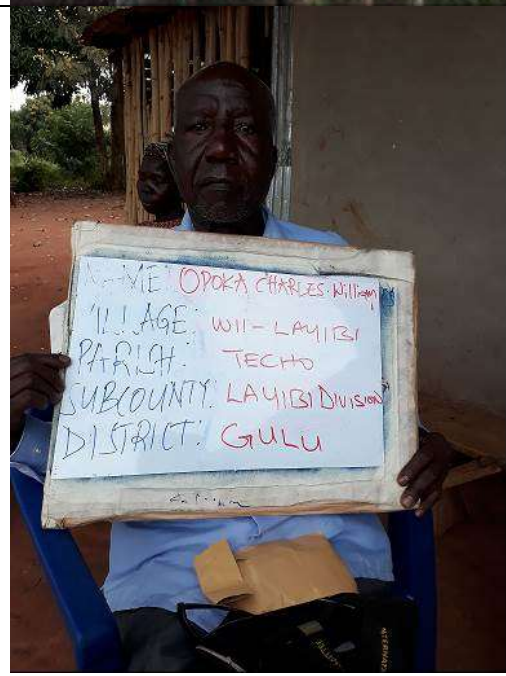 NAME: OPOKA CHARLES William
VILLAGE: WII-LAYIBI
PARISH: TECHO
SUBCOUNTY: LAYIBI DIVISION
DISTRICT: GULU